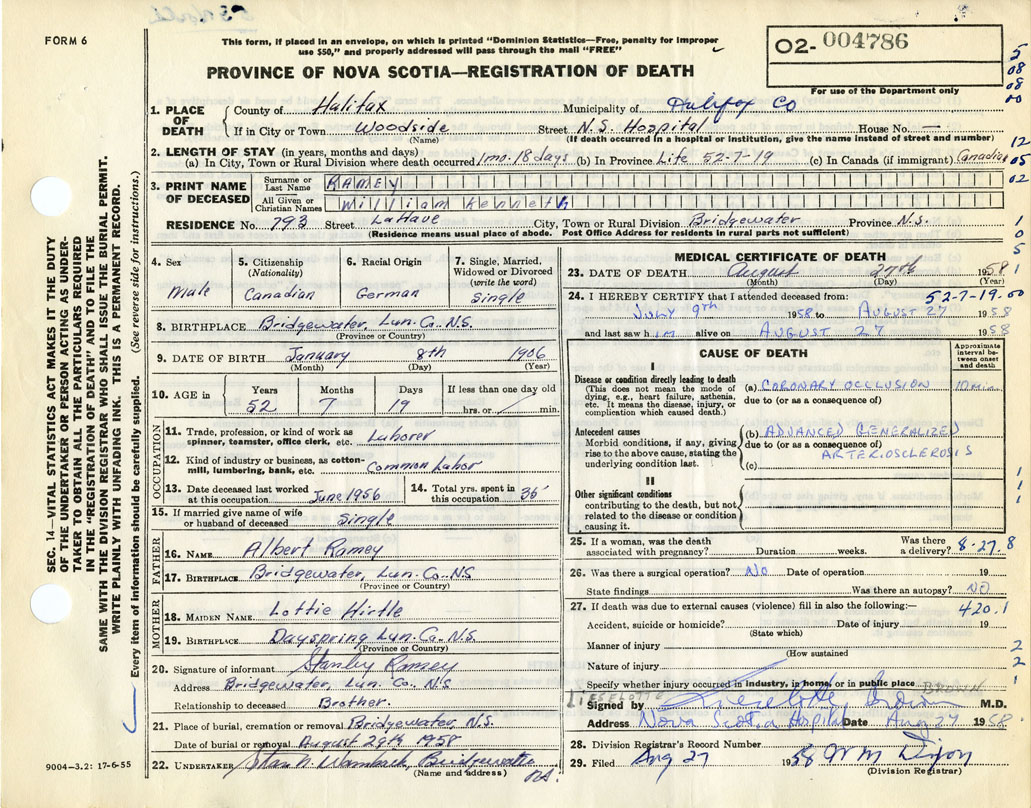 FORM 6
This form, if placed in an envelope, on which is printed "Dominion Statistics—Free, penalty for improper
use $50," and properly addressed will pass through the mail "FREE"
02- 004786
For use of the Department only
PROVINCE OF NOVA SCOTIA—REGISTRATION OF DEATH
1. PLACE OF DEATH
County of Halifax Municipality of Halifax Co
If in City or Town Woodside Street N.S. Hospital House No. —
(Name) (If death occurred in a hospital or institution, give the name instead of street and number)
2. LENGTH OF STAY (in years, months and days)
(a) In City, Town or Rural Division where death occurred 1 mo. 18 days (b) In Province Life 52-7-19 (c) In Canada (if immigrant) Canadian
3. PRINT NAME OF DECEASED
Surname or Last Name RAMEY
All Given or Christian Names William Kenneth
RESIDENCE No. 793 Street LaHave City, Town or Rural Division Bridgewater Province N.S.
(Residence means usual place of abode. Post Office Address for residents in rural parts not sufficient)
4. Sex
Male
5. Citizenship (Nationality)
Canadian
6. Racial Origin
German
7. Single, Married, Widowed or Divorced (write the word)
Single
8. BIRTHPLACE Bridgewater, Lun. Co. N.S.
(Province or Country)
9. DATE OF BIRTH January 8th 1906
(Month) (Day) (Year)
10. AGE in
Years Months Days If less than one day old
52 7 19 hrs. or min.
OCCUPATION
11. Trade, profession, or kind of work as
spinner, teamster, office clerk, etc. Laborer
12. Kind of industry or business, as cotton-
mill, lumbering, bank, etc. Common Labor
13. Date deceased last worked
at this occupation June 1956
14. Total yrs. spent in
this occupation 35
15. If married give name of wife
or husband of deceased Single
FATHER
16. NAME Albert Ramey
17. BIRTHPLACE Bridgewater, Lun. Co. N.S
(Province or Country)
MOTHER
18. MAIDEN NAME Lottie Hirtle
19. BIRTHPLACE Dayspring Lun. Co. N.S.
(Province or Country)
20. Signature of informant Stanley Ramey
Address Bridgewater, Lun. Co. N.S
Relationship to deceased Brother.
21. Place of burial, cremation or removal Bridgewater N.S.
Date of burial or removal August 29th 1958
22. UNDERTAKER Bridgewater
(Name and address) NS.
MEDICAL CERTIFICATE OF DEATH
23. DATE OF DEATH August 27th 1958
(Month) (Day) (Year)
24. I HEREBY CERTIFY that I attended deceased from: 52-7-19.00
July 9th 1958 to AUGUST 27 1958
and last saw him alive on AUGUST 27 1958
CAUSE OF DEATH
Approximate interval between onset and death
I
Disease or condition directly leading to death
(This does not mean the mode of
dying, e.g., heart failure, asthenia,
etc. It means the disease, injury, or
complication which caused death.)
(a) CORONARY OCCLUSION 10 min
due to (or as a consequence of)
Antecedent causes
Morbid conditions, if any, giving
rise to the above cause, stating the
underlying condition last.
(b) ADVANCED GENERALIZED
due to (or as a consequence of)
ARTERIOSCLEROSIS
(c)
II
Other significant conditions
contributing to the death, but not
related to the disease or condition
causing it.
25. If a woman, was the death
associated with pregnancy? Duration weeks. Was there
a delivery? 8-27.8
26. Was there a surgical operation? No Date of operation 19
State findings Was there an autopsy? NO
27. If death was due to external causes (violence) fill in also the following:— 420.1
Accident, suicide or homicide? Date of injury 19
(State which)
Manner of injury
(How sustained
Nature of injury
Specify whether injury occurred in industry, in home, or in public place
LIESELOTTE BROWN
Signed by Lieselotte Brown M.D.
Address Nova Scotia Hospital Date Aug 27 1958.
28. Division Registrar's Record Number
29. Filed Aug 27 1958 W M Dixon
(Division Registrar)
SEC. 14—VITAL STATISTICS ACT MAKES IT THE DUTY
OF THE UNDERTAKER OR PERSON ACTING AS UNDER-
TAKER TO OBTAIN ALL THE PARTICULARS REQUIRED
IN THE "REGISTRATION OF DEATH" AND TO FILE THE
SAME WITH THE DIVISION REGISTRAR WHO SHALL ISSUE THE BURIAL PERMIT.
WRITE PLAINLY WITH UNFADING INK. THIS IS A PERMANENT RECORD.
Every item of information should be carefully supplied. (See reverse side for instructions.)
9004—3.2: 17-6-55
5
08
08
00
12
05
02
1
0
5
1
1
1
1
2
2
1